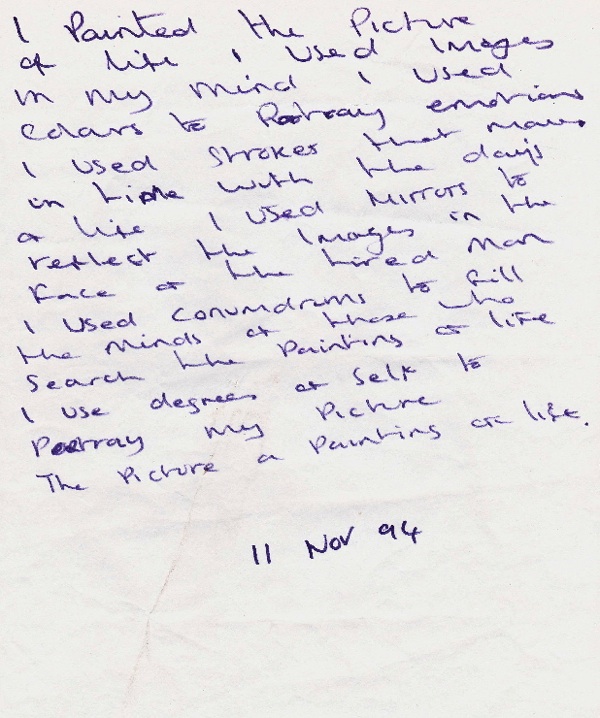 I Painted the Picture
of life I Used Images
in my mind I used
colours to Portray emotions
I used Strokes that moves
in time with the days
of life I used Mirrors to
reflect the Images in the
face of the tired man
I Used conumdrums to fill
the minds of those who
Search the Painting of life
I use degrees of Self to
Portray my Picture
The Picture a Painting of life.
11 Nov 94